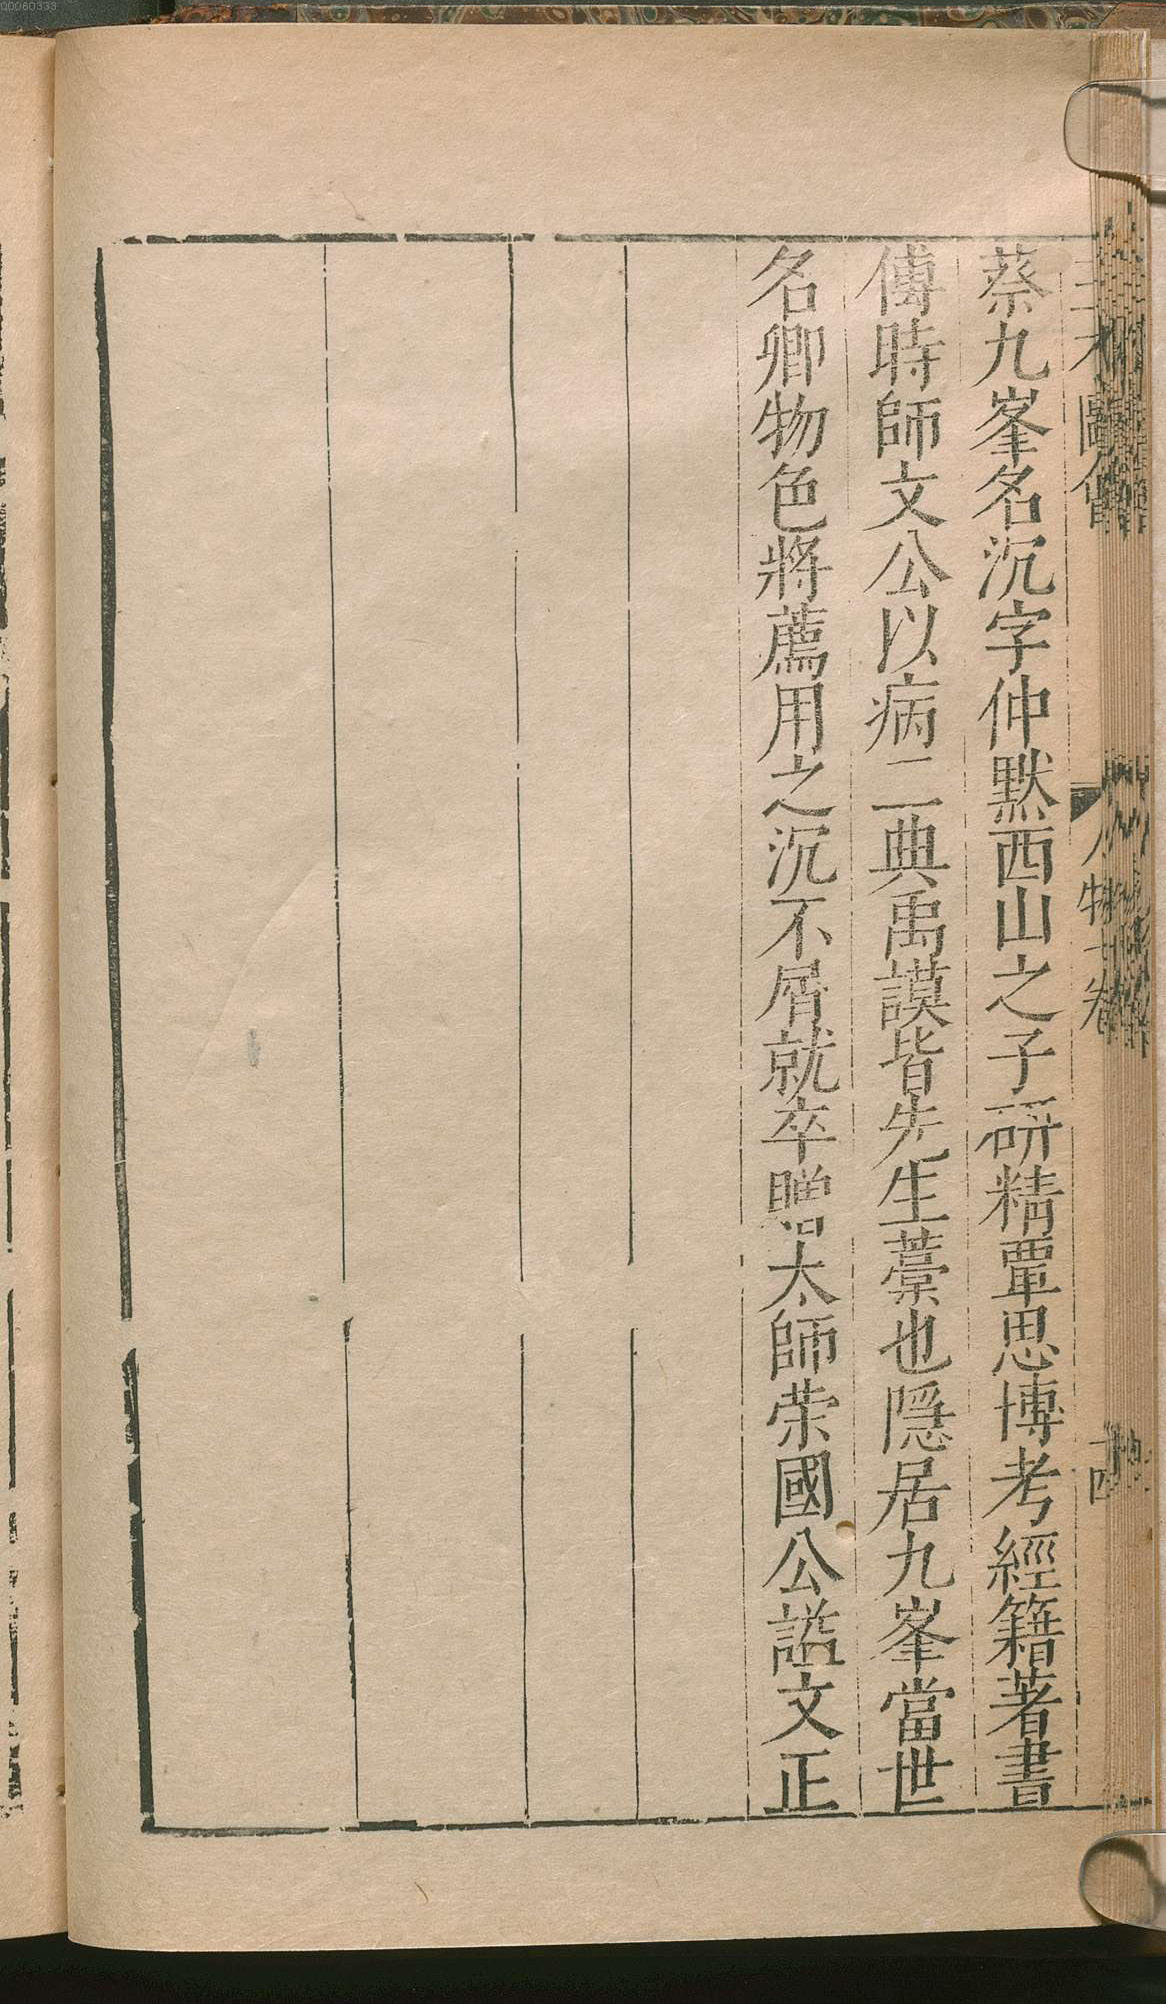 蔡九峯名沉字仲默西山之子研精覃思博考經籍著書
傅時師文公以病二典禹謨皆先生藁也隱居九峯當世
名卿物色將薦用之沉不屑就卒贈太師荣國公謚文正
圖會
人物七卷
十四
00060333